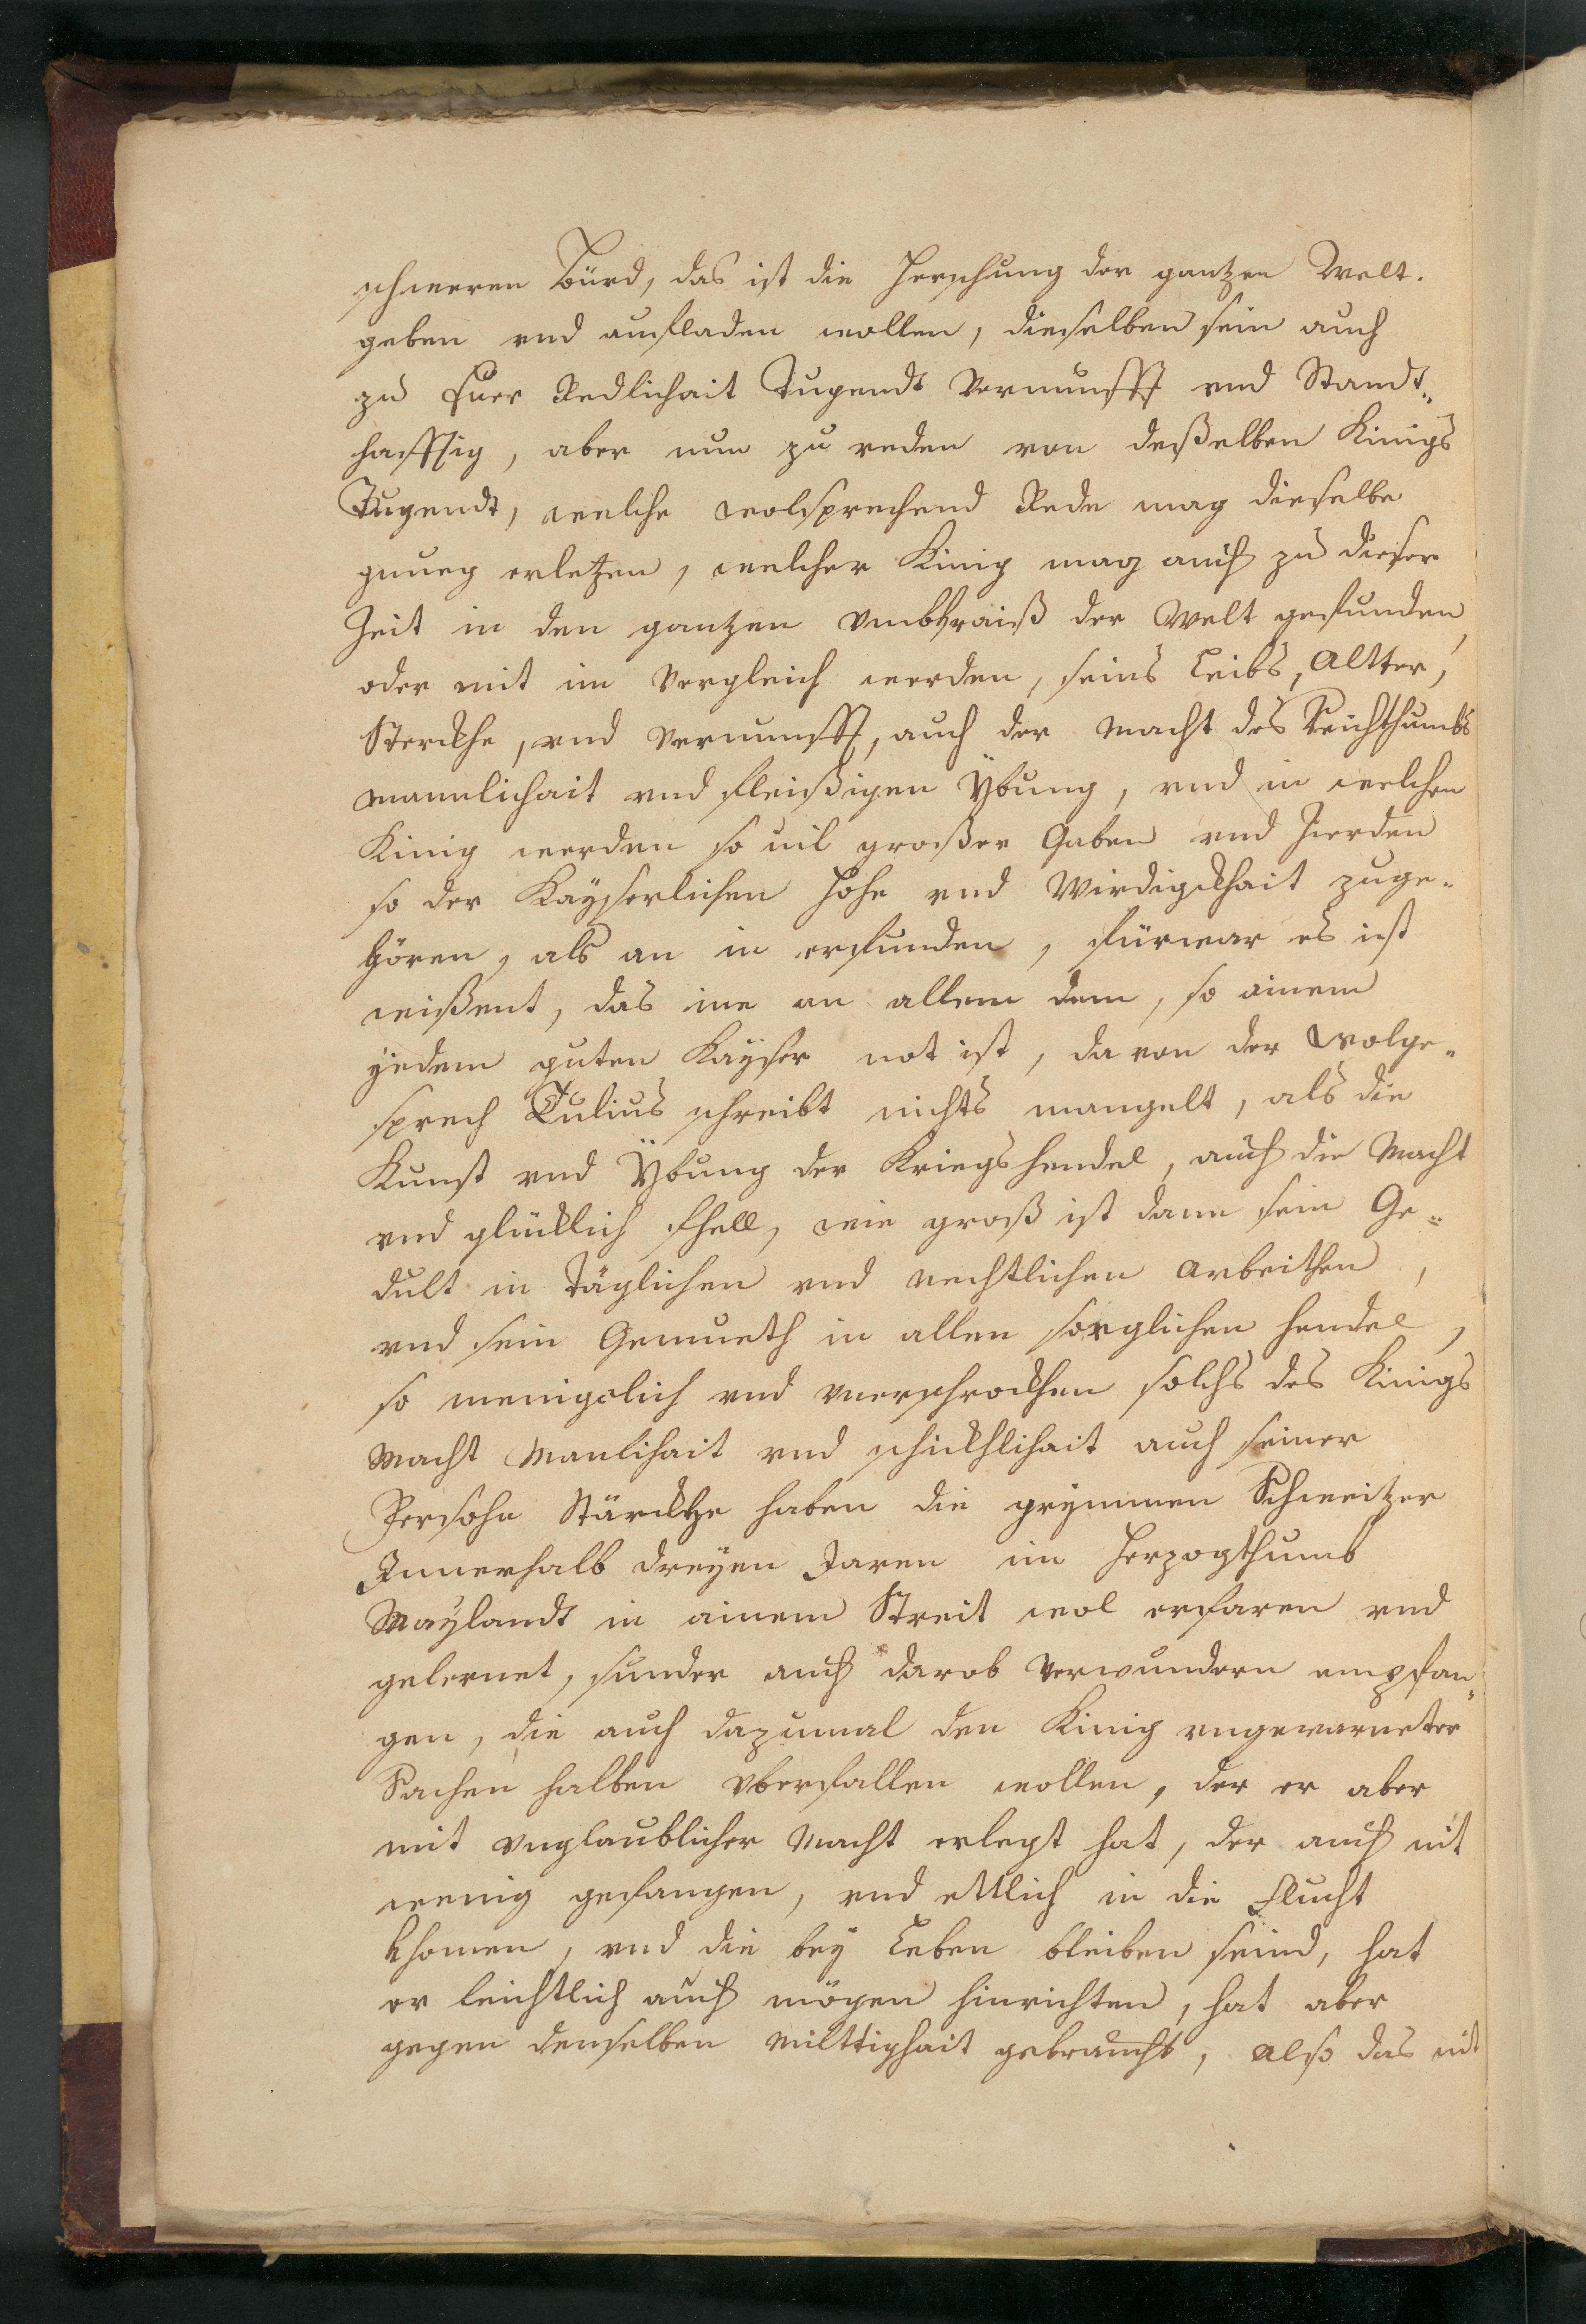 schweren Bürd, das ist die Herschung der gantzen Welt.
geben vnd aufladen wollen, dieselben sein auch
zu Euer Redlichait Tugendt Vernunfft vnd Standt„
hafftig, aber nun zu reden von deßelben Kinigs
Tugendt, welche wolsprechend Rede mag dieselbe
gnueg erletzen, welcher Kinig mag auch zu dieser
Zeit in den gantzen Vmbkraiß der Welt gefunden
oder mit im Vergleich werden, seins Leibs, Altter,
Sterckhe, vnd Vernunfft, auch der Macht des Reichthumbs
Mannlichait vnd fleißigen Ybung, vnd in welchen
Kinig werden so uil großer Gaben vnd Zierden
so der Kayserlichen Hohe vnd Wirdigkhait zuge„
hören, als an in erfunden, fürwar es ist
wißent, das ime an allem dem, so ainem
yedem guten Kayser not ist, da von der Wolge„
sprech Tulius schreibt nichts mangelt, als die
Kunst vnd Ÿbung der Kriegs hendel, auch die Macht
vnd glücklich fhell, wie groß ist dann sein Ge„
dult in Täglichen vnd nechtlichen Arbeithen,
vnd sein Gemueth in allen sorglichen hendel,
so menigclich vnd vnerschrockhen solchs des Kinigs
Macht Manlihait vnd schickhlihait auch seiner
Persohn Stärckhe haben die grymmen Schweitzer
Innerhalb dreyen Jaren im Herzogthumb
Maylandt in ainem Streit wol erfaren vnd
gelernet, sunder auch darob Verwundern empfan„
gen, die auch dazumal den Kinig vngewarneter
Sachen halben vberfallen wollen, der er aber
mit vnglaublicher Macht erlegt hat, der auch nit
wenig gefangen, vnd ettlich in die Flucht
khomen, vnd die bey Leben bleiben seind, hat
er leichtlich auch mögen hinrichten, hat aber
gegen denselben Milttighait gebraucht, also das nit